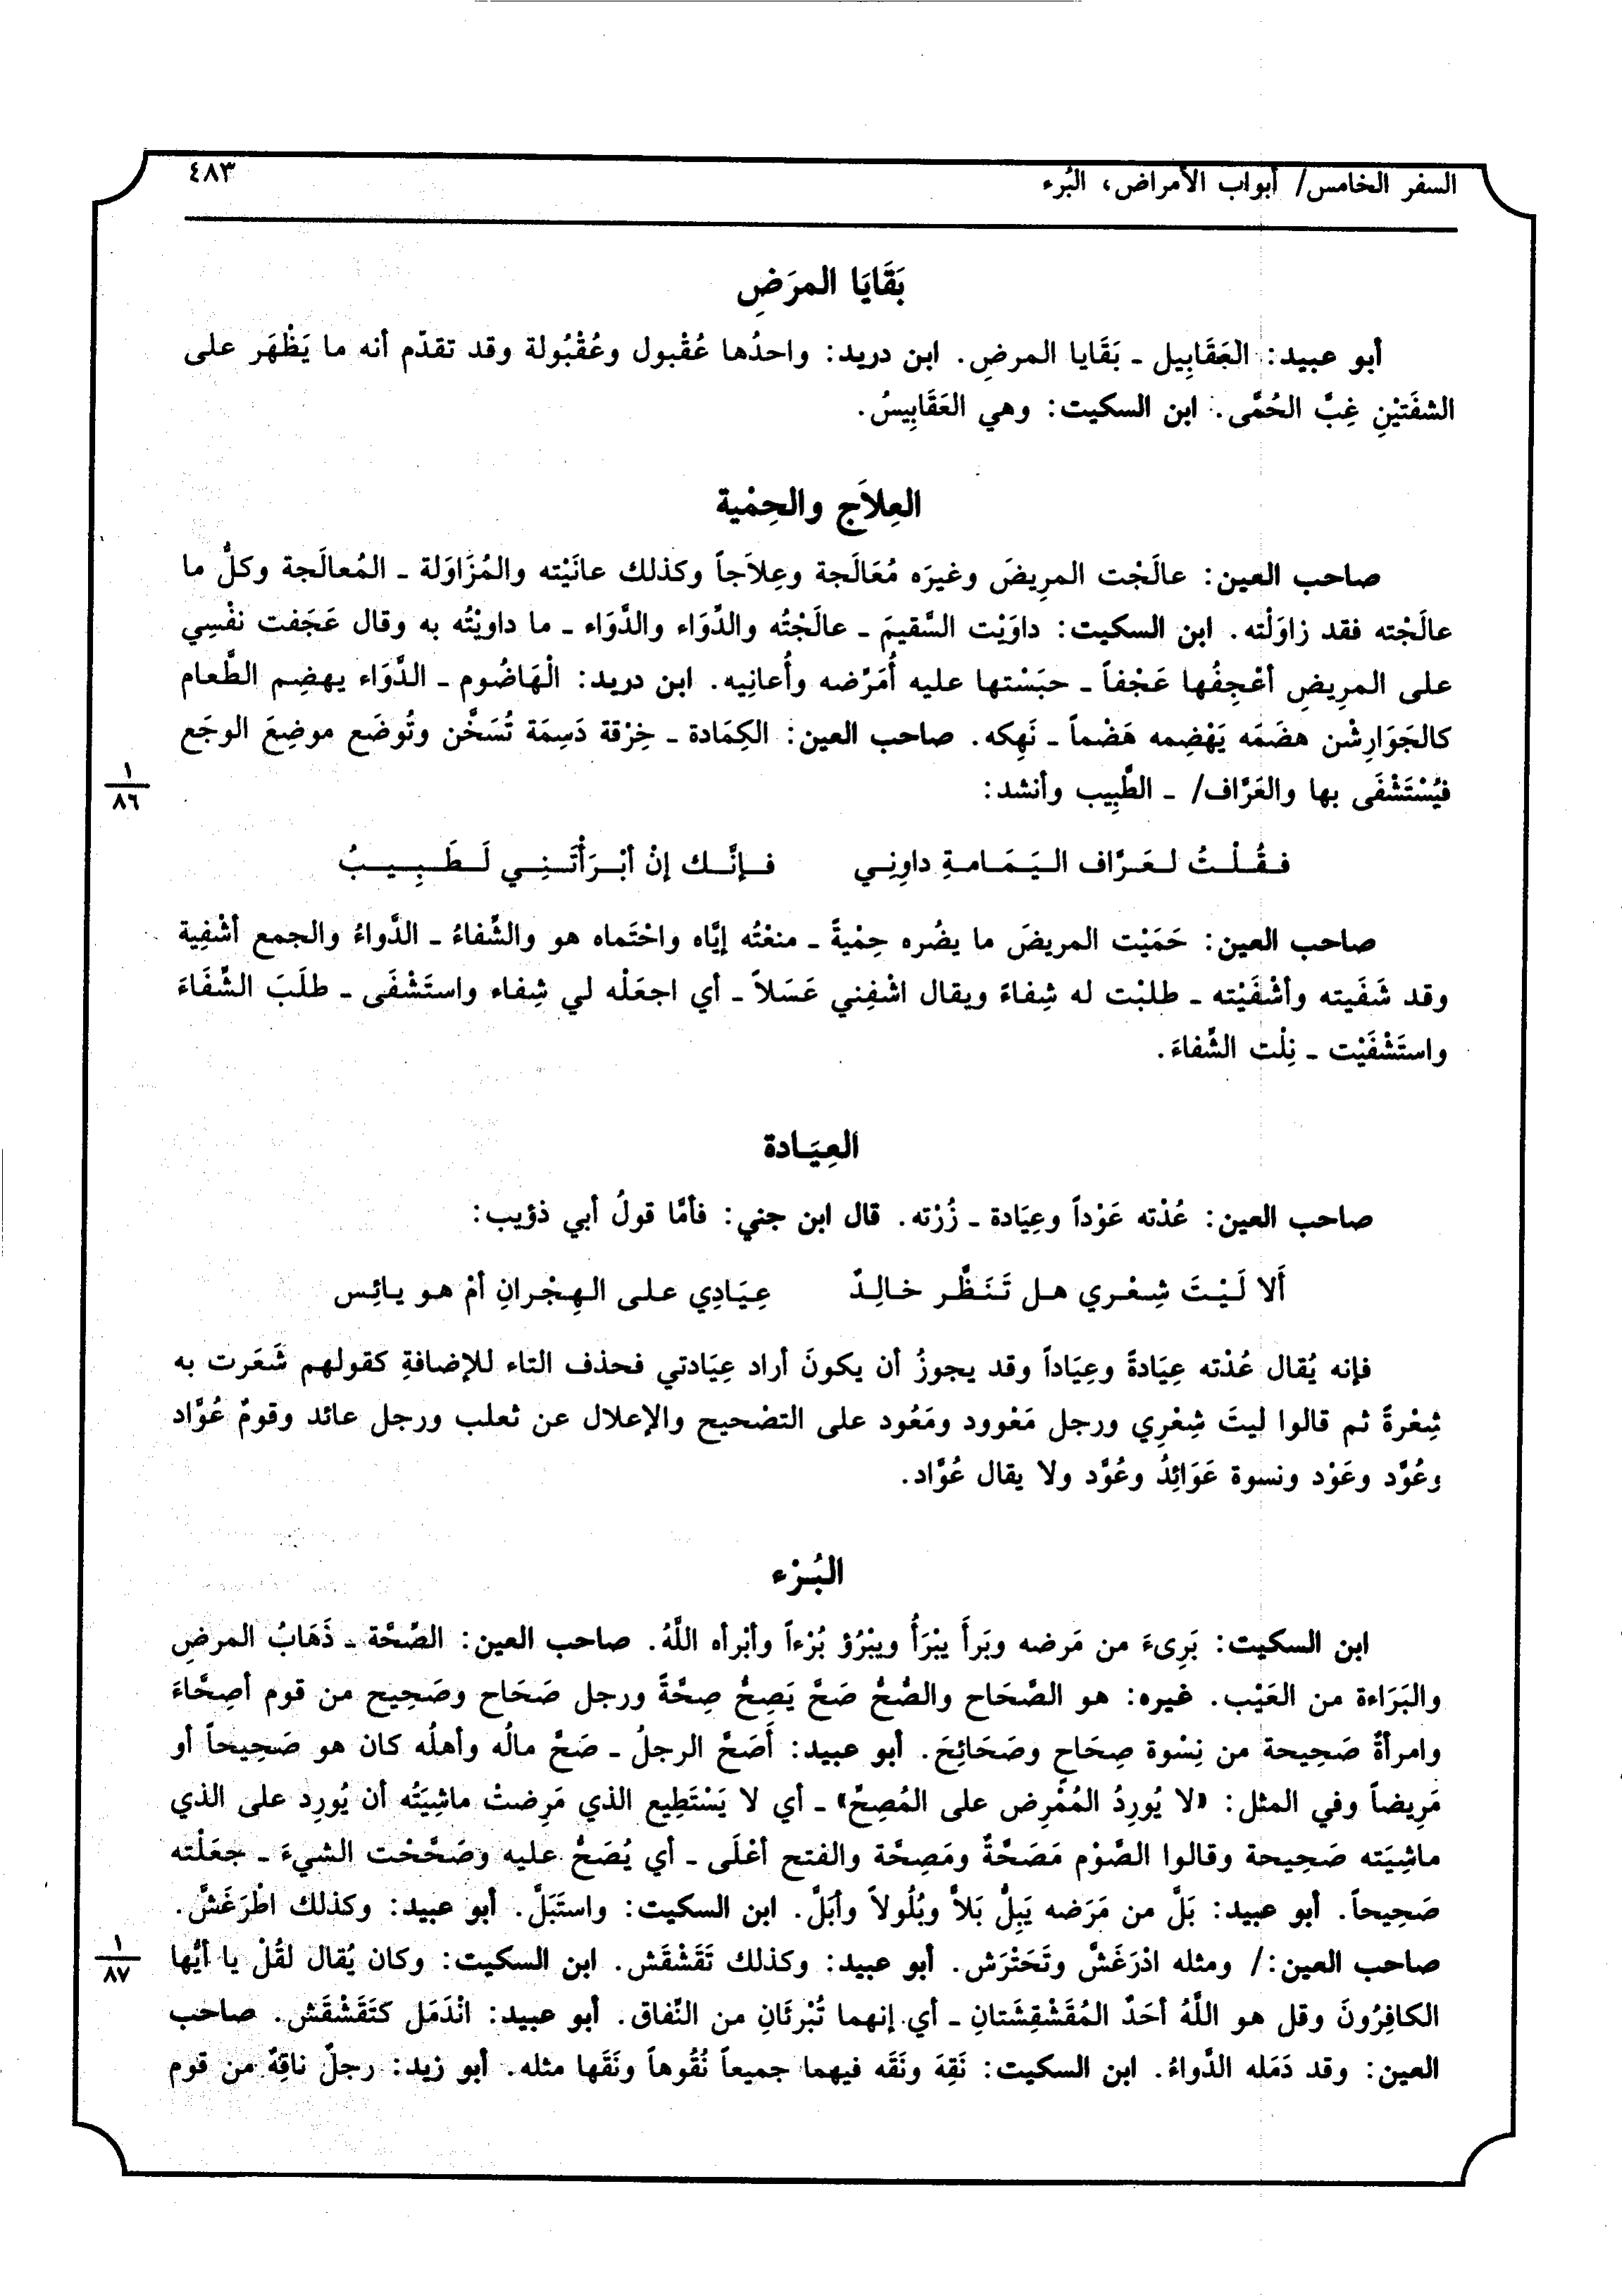 السفر الخامس/ أبواب الأمراض، البُرء
٤٨٣
بَقَايَا المرَضِ
أبو عبيد: العَقَابِيل ـ بَقَايا المرضِ. ابن دريد: واحدُها عُقْبول وعُقْبُولة وقد تقدّم أنه ما يَظْهَر على
الشفَتيْنِ غِبَّ الحُمَّى. ابن السكيت: وهي العَقَابِيسُ.
العِلاَج والحِمْية
صاحب العين: عالَجْت المرِيضَ وغيرَه مُعَالَجة وعِلاَجاً وكذلك عانَيْته والمُزَاوَلة ـ المُعالَجة وكلُّ ما
عالَجْته فقد زاوَلْته. ابن السكيت: داوَيْت السَّقيمَ ـ عالَجْتُه والدِّوَاء والدَّوَاء ـ ما داويْتُه به وقال عَجَفت نفْسِي
على المرِيضِ أعْجِفُها عَجْفاً ـ حبَسْتها عليه أُمَرِّضه وأُعانِيه. ابن دريد: الْهَاضُوم ـ الدَّوَاء يهضِم الطَّعام
كالجَوَارِشْن هضَمَه يَهْضِمه هَضْماً ـ نَهِكه. صاحب العين: الكِمَادة ـ خِرْقة دَسِمَة تُسَخَّن وتُوضَع موضِعَ الوجَع
فيُسْتَشْفَى بها والعَرَّاف/ ـ الطَّبِيب وأنشد:
١
٨٦
فـقُـلْـتُ لـعَـرَّاف الـيَـمَـامـةِ داوِنِـي فـإنَّـك إنْ أبْـرَأْتَـنِـي لَـطَـبِـيـبُ
صاحب العين: حَمَيْت المريضَ ما يضُره حِمْيةً ـ منعْتُه إيَّاه واحْتَماه هو والشِّفاءُ ـ الدَّواءُ والجمع أشْفِية
وقد شَفَيته وأشْفَيْته ـ طلبْت له شِفاءً ويقال اشْفِني عَسَلاً ـ أي اجعَلْه لي شِفاء واستَشْفَى ـ طلَبَ الشِّفَاءَ
واستَشْفَيْت ـ نِلْت الشِّفاءَ.
العِيَـادة
صاحب العين: عُدْته عَوْداً وعِيَادة ـ زُرْته. قال ابن جني: فأمَّا قولُ أبي ذؤيب:
أَلا لَـيْـتَ شِـعْـري هـل تَـنَـظَّـر خـالِـدٌ عِـيَـادِي عـلـى الـهِـجْـرانِ أمْ هـو يـائِـس
فإنه يُقال عُدْته عِيَادةً وعِيَاداً وقد يجوزُ أن يكونَ أراد عِيَادتي فحذف التاء للإضافةِ كقولهم شَعَرت به
شِعْرةً ثم قالوا ليتَ شِعْرِي ورجل مَعْوود ومَعُود على التصْحيح والإعلال عن ثعلب ورجل عائد وقومٌ عُوَّاد
وعُوَّد وعَوْد ونسوة عَوَائِدُ وعُوَّد ولا يقال عُوَّاد.
البُـرْء
ابن السكيت: بَرِىءَ من مَرضه وبَرأَ يبْرَأُ ويبْرُؤ بُرْءاً وأبْرأه اللَّهُ. صاحب العين: الصِّحَّة ـ ذَهَابُ المرضِ
والبَرَاءة من العَيْب. غيره: هو الصَّحَاح والصُّحُّ صَحَّ يَصِحُّ صِحَّةً ورجل صَحَاح وصَحِيح من قوم أصِحَّاءَ
وامرأةٌ صَحِيحة من نِسْوة صِحَاحٍ وصَحَائِحَ. أبو عبيد: أَصَحَّ الرجلُ ـ صَحَّ مالُه وأهلُه كان هو صَحِيحاً أو
مَرِيضاً وفي المثل: «لا يُورِدُ المُمْرِض على المُصِحِّ» ـ أي لا يَسْتَطِيع الذي مَرِضتْ ماشِيَتُه أن يُورِد على الذي
ماشِيَته صَحِيحة وقالوا الصَّوْم مَصَحَّةٌ ومَصِحَّة والفتح أعْلَى ـ أي يُصَحُّ عليه وصَحَّحْت الشيءَ ـ جعَلْته
صَحِيحاً. أبو عبيد: بَلَّ من مَرَضه يَبِلُّ بَلاًّ وبُلُولاً وأبَلَّ. ابن السكيت: واستَبَلَّ. أبو عبيد: وكذلك اطْرَغَشَّ.
صاحب العين:/ ومثله ادْرَغَشَّ وتَحَتْرَش. أبو عبيد: وكذلك تَقَشْقَش. ابن السكيت: وكان يُقال لقُلْ يا أيُّها
١
٨٧
الكافِرُونَ وقل هو اللَّهُ أحَدٌ المُقَشْقِشَتانِ ـ أي إنهما تُبْرئَانِ من النِّفاق. أبو عبيد: انْدَمَل كتَقَشْقَش. صاحب
العين: وقد دَمَله الدَّواءُ. ابن السكيت: نَقِهَ ونَقَه فيهما جميعاً نُقُوهاً ونَقَها مثله. أبو زيد: رجلٌ ناقِهٌ من قوم